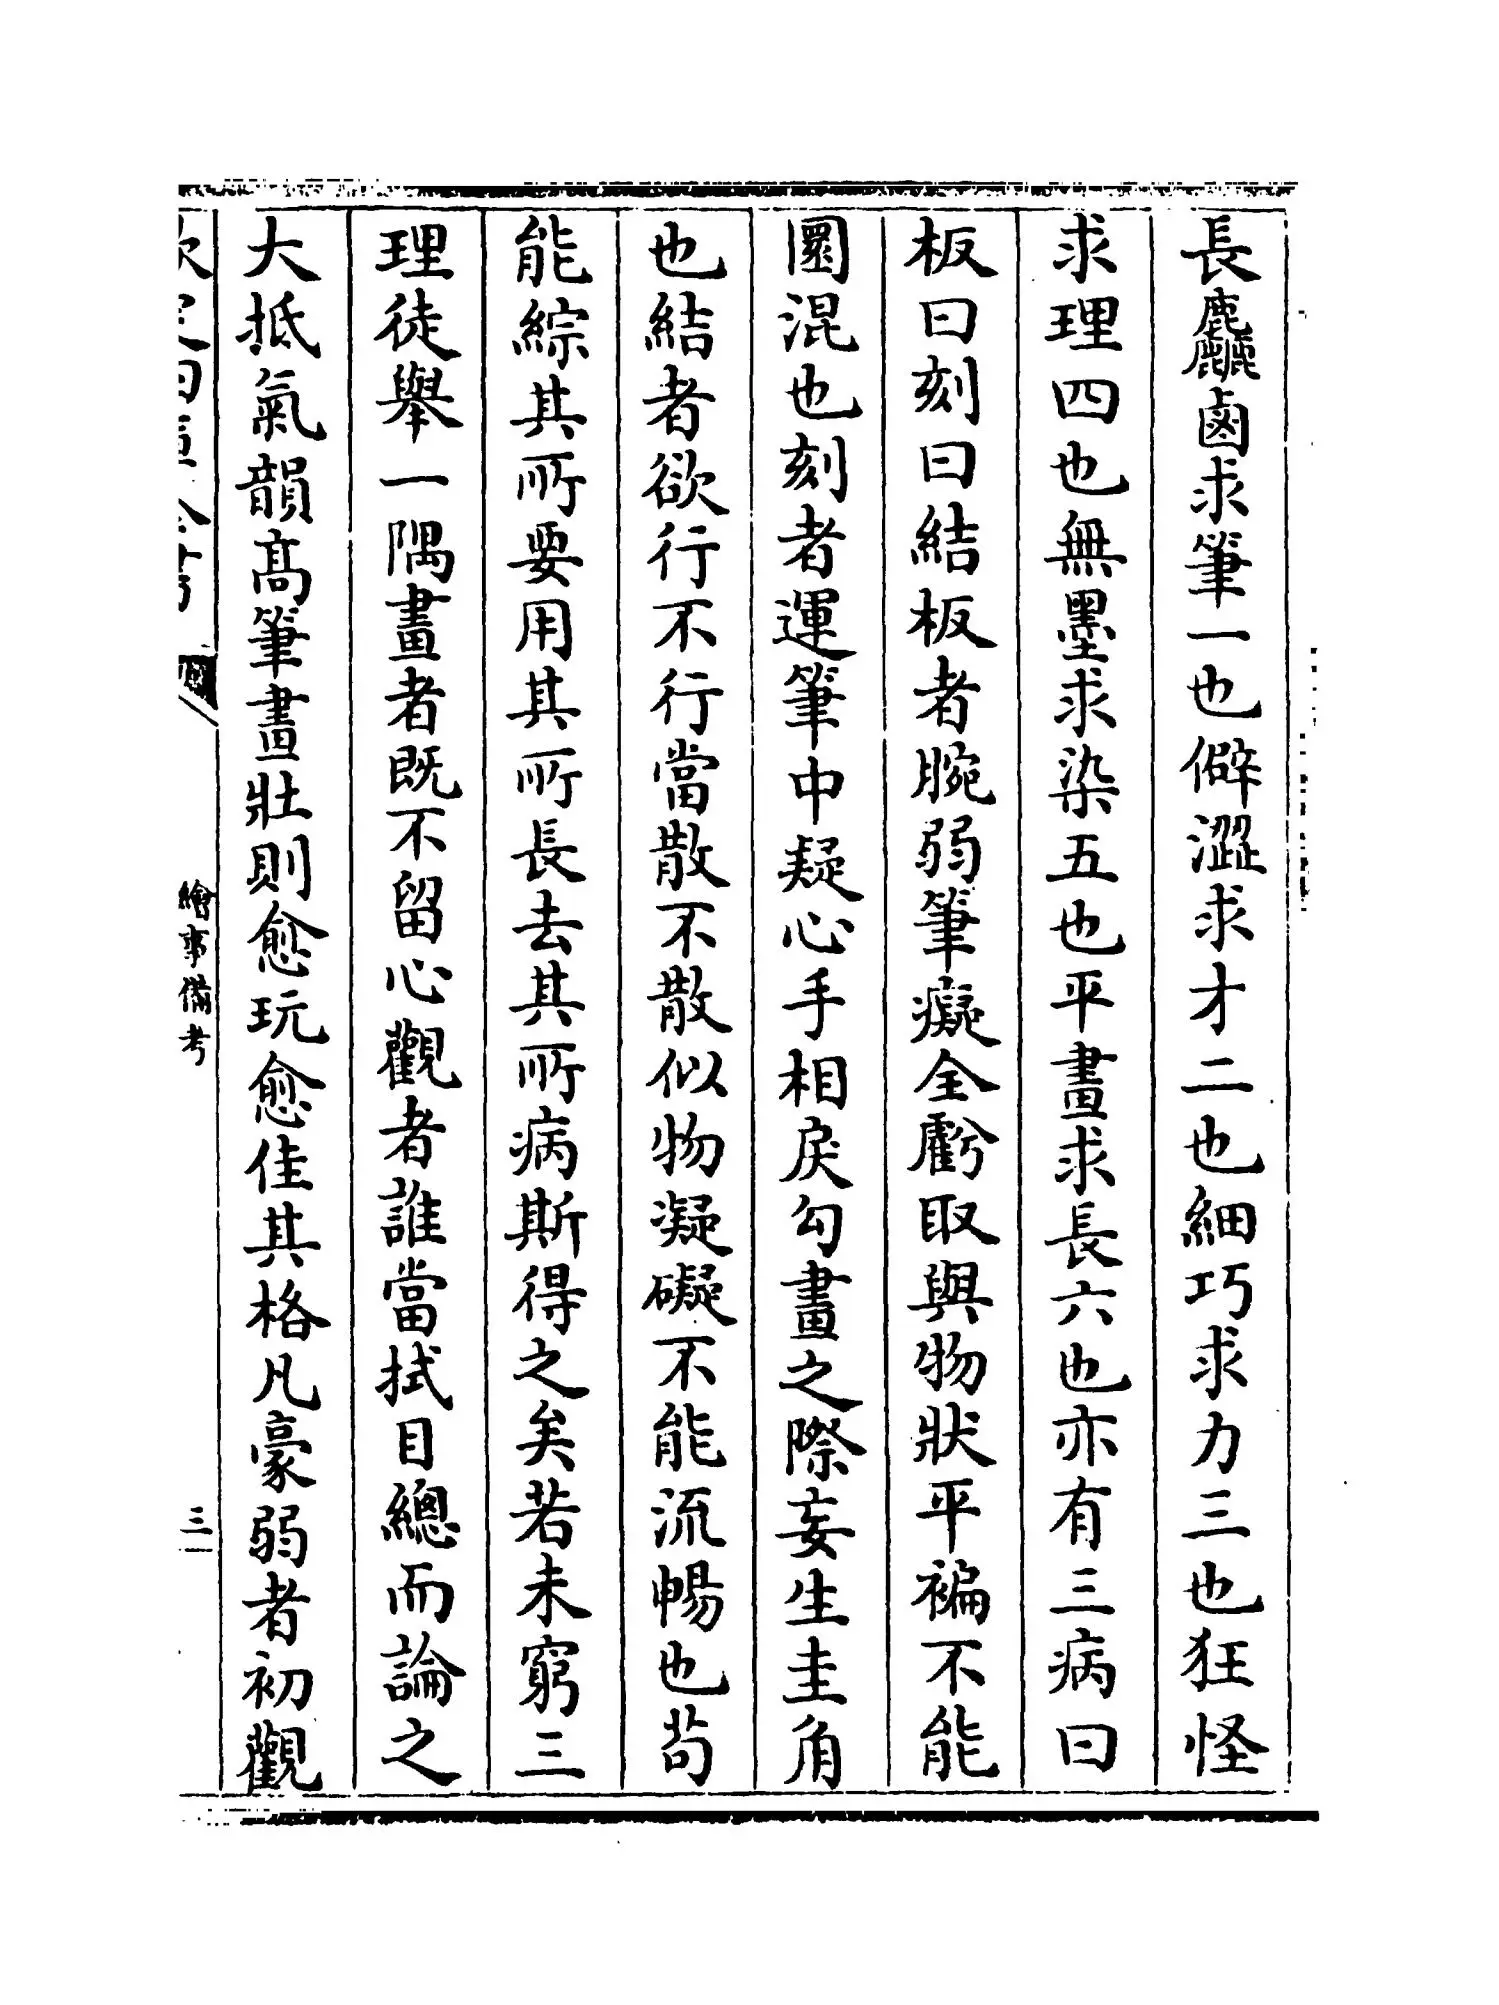 長麤鹵求筆一也僻澀求才二也細巧求力三也狂怪
求理四也無墨求染五也平畫求長六也亦有三病曰
板曰刻曰結板者腕弱筆癡全虧取與物狀平褊不能
圜混也刻者運筆中疑心手相戾勾畫之際妄生圭角
也結者欲行不行當散不散似物凝礙不能流暢也茍
能綜其所要用其所長去其所病斯得之矣若未窮三
理徒舉一隅畫者既不留心觀者誰當拭目總而論之
大抵氣韻高筆畫壯則愈玩愈佳其格凡豪弱者初觀
欽定四庫全書
繪事備考
三